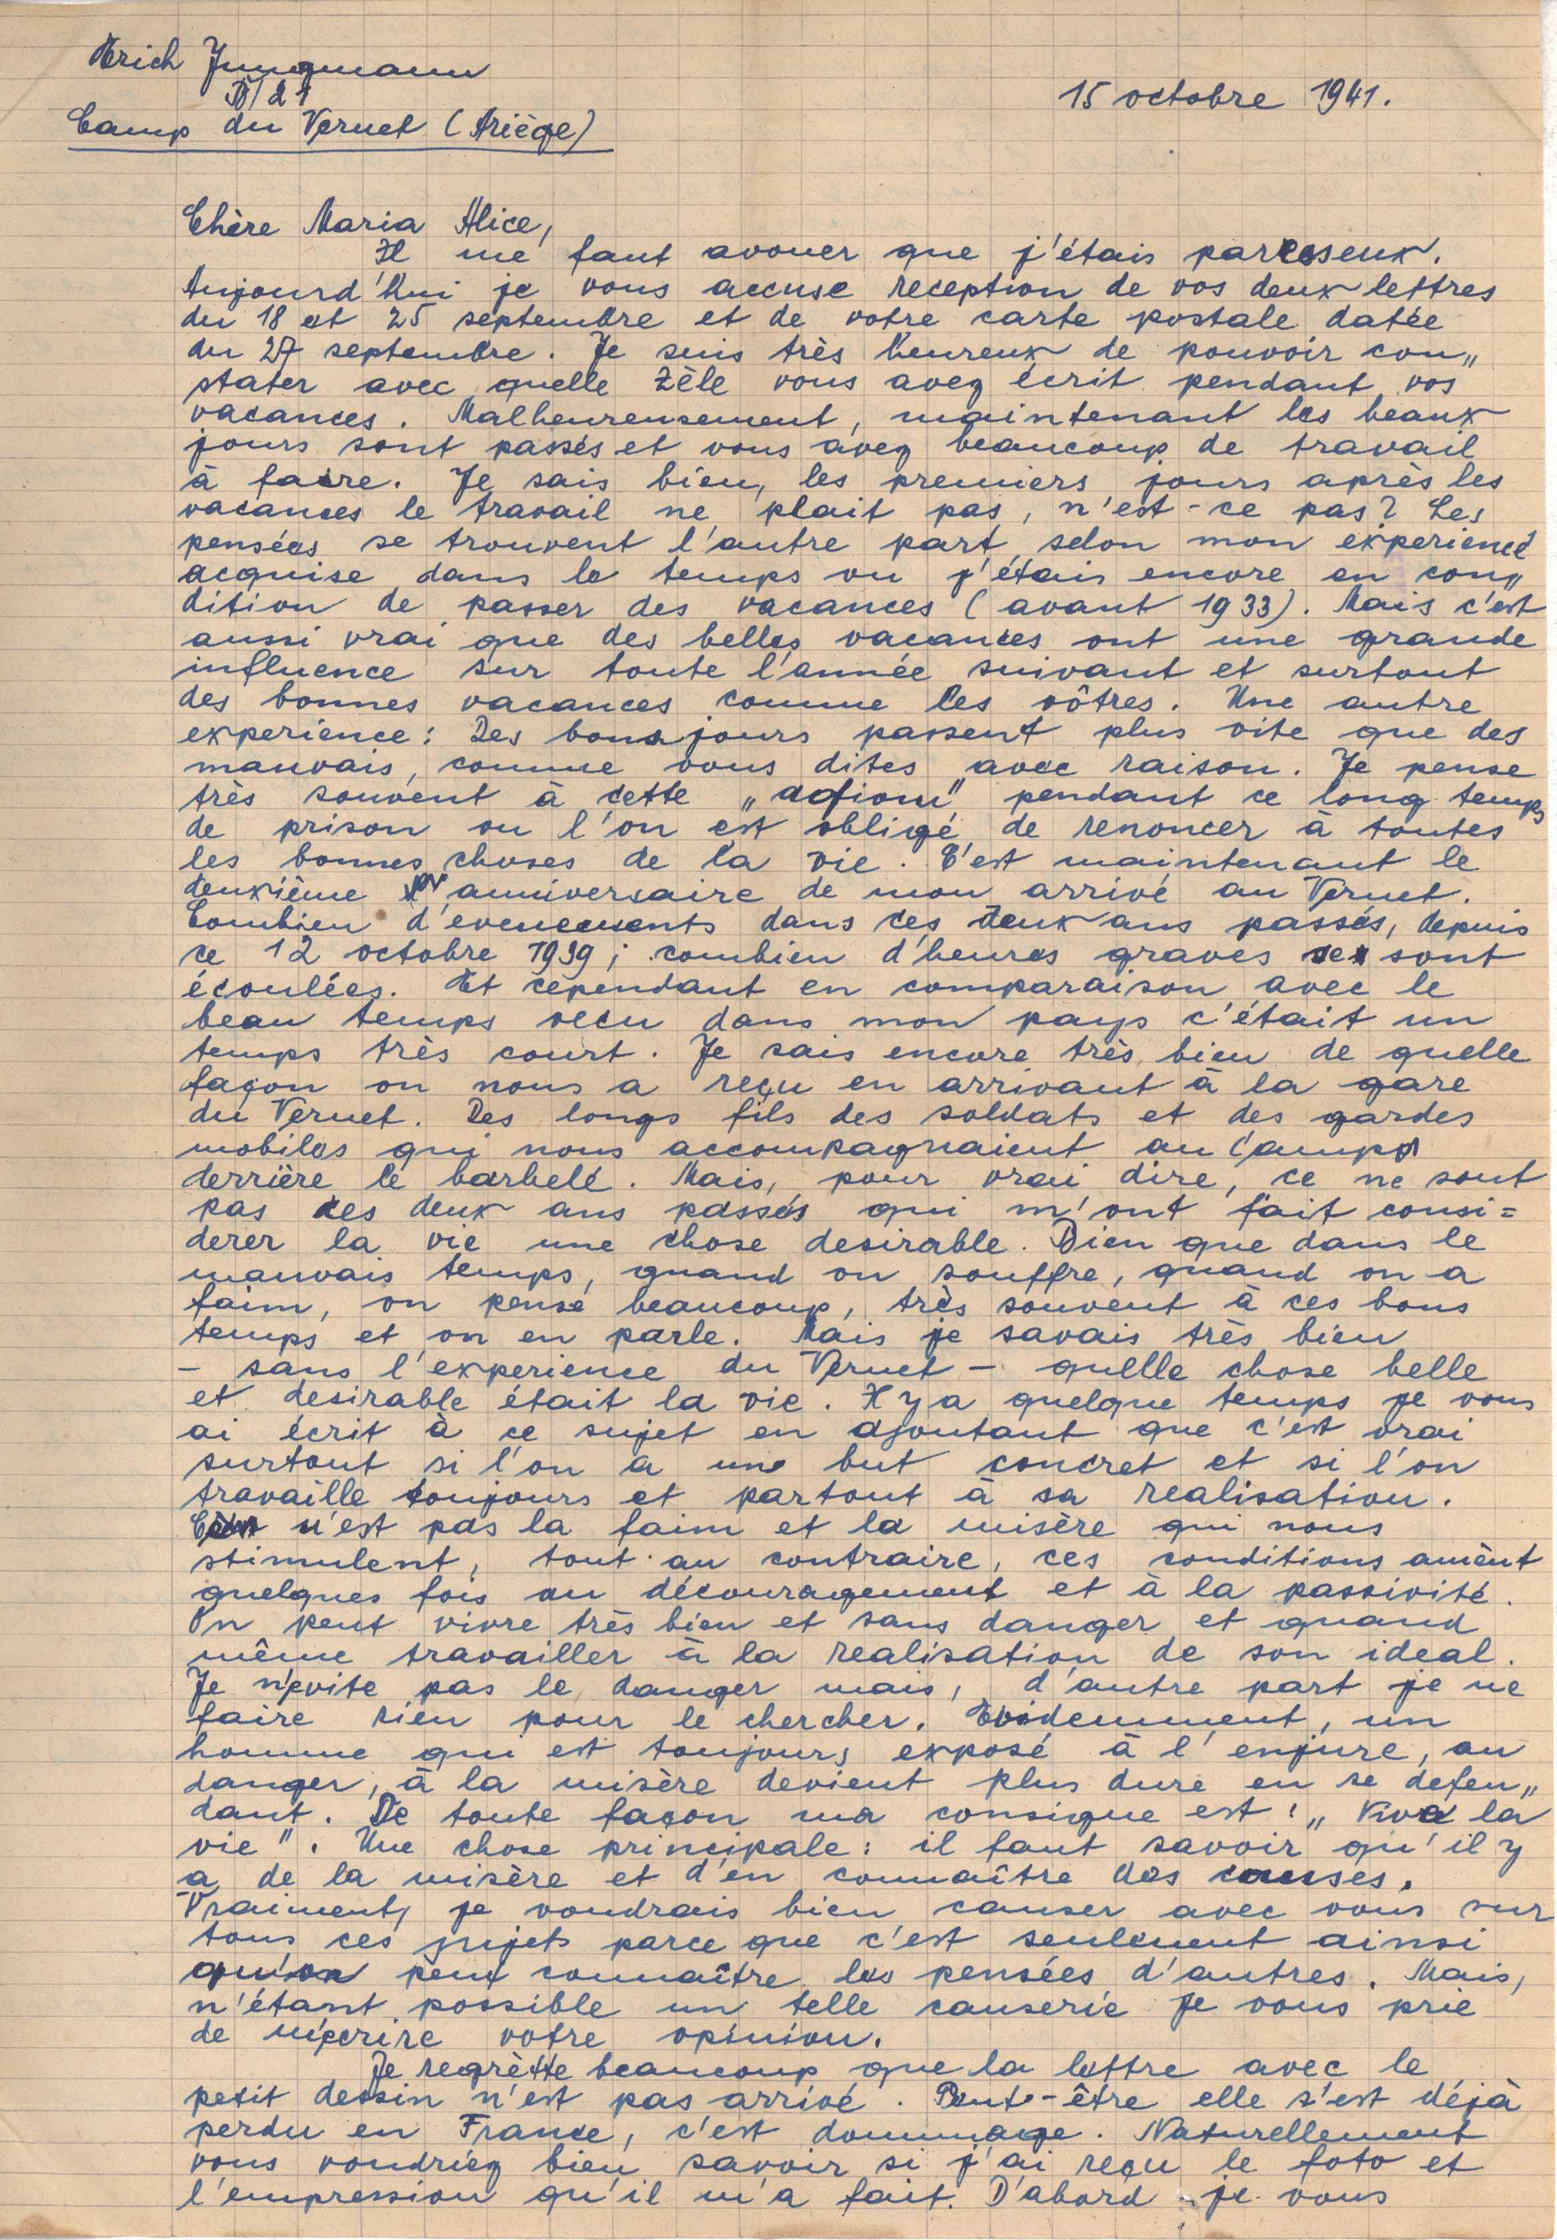 Erich Jungmann
B/21
Camp du Vernet (Ariège)
15 octobre 1941.
Chère Maria Alice,
Il me faut avouer que j'étais paresseux.
Aujourd'hui je vous accuse reception de vos deux lettres
du 18 et 25 septembre et de votre carte postale datée
du 27 septembre. Je suis très heureux de pouvoir con„
stater avec quelle zèle vous avez écrit pendant vos
vacances. Malheureusement, maintenant les beaux
jours sont passés et vous avez beaucoup de travail
à faire. Je sais bien, les premiers jours après les
vacances le travail ne plait pas, n'est-ce pas? Les
pensées se trouvent l'autre part, selon mon experience
acquise dans le temps ou j'étais encore en con„
dition de passer des vacances (avant 1933). Mais c'est
aussi vrai que des belles vacances ont une grande
influence sur toute l'année suivant et surtout
des bonnes vacances comme les vôtres. Une autre
experience: Des bons jours passent plus vite que des
mauvais, comme vous dites avec raison. Je pense
très souvent à cette „ pendant ce long temps
de prison ou l'on est obligé de renoncer à toutes
les bonnes choses de la vie. C'est maintenant le
deuxième anniversaire de mon arrivé au Vernet.
Combien d'evenements dans ces deux ans passés, depuis
ce 12 octobre 1939; combien d'heures graves se sont
écoulées. Et cependant en comparaison avec le
beau temps vecu dans mon pays c'était un
temps très court. Je sais encore très bien de quelle
façon on nous a reçu en arrivant à la gare
du Vernet. Des longs fils des soldats et des gardes
mobiles qui nous accompagnaient au Camp
derrière le barbelé. Mais, pour vrai dire, ce ne sont
pas ces deux ans passés qui m'ont fait consi=
derer la vie une chose desirable. Bien que dans le
mauvais temps, quand on souffre, quand on a
faim, on pense beaucoup, très souvent à ces bons
temps et on en parle. Mais je savais très bien
- sans l'experience du Vernet - quelle chose belle
et desirable était la vie. Il y a quelque temps je vous
ai écrit à ce sujet en ajoutant que c'est vrai
surtout si l'on a un but concret et si l'on
travaille toujours et partout à sa realisation.
Ce n'est pas la faim et la misère qui nous
stimulent, tout au contraire, ces conditions amènt
quelques fois au découragement et à la passivité.
On peut vivre très bien et sans danger et quand
même travailler à la realisation de son ideal.
Je n'evite pas le danger mais, d'autre part je ne
faire rien pour le chercher. Evidemment, un
homme qui est toujours exposé à l'enjure, au
danger, à la misère devient plus dure en se defen„
dant. De toute façon ma consigne est: „Viva la
vie". Une chose principale: il faut savoir qu'il y
a de la misère et d'en connaître des causes.
Vraiment, je voudrais bien causer avec vous sur
tous ces sujets parce que c'est seulement ainsi
qu'on peut connaître les pensées d'autres. Mais,
n'étant possible un telle causerie je vous prie
de m'écrire votre opinion.
Je regrètte beaucoup que la lettre avec le
petit dessin n'est pas arrivé. Peut-être elle s'est déjà
perdu en France, c'est dommage. Naturellement
vous voudriez bien savoir si j'ai reçu le foto et
l'empression qu'il m'a fait. D'abord je vous